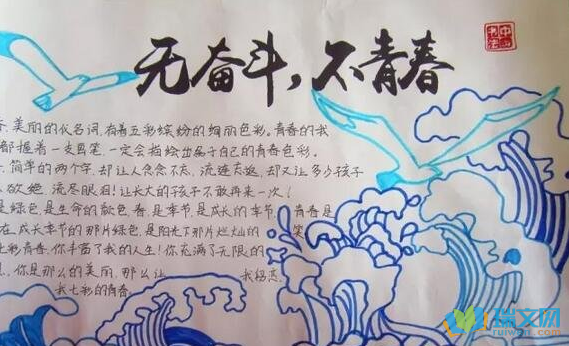 无奋斗，不青春
中国书法
美丽的代名词，有着五彩缤纷的绚丽色彩。青春的我
都握着一支画笔，一定会描绘出属于自己的青春色彩。
简单的两个字，却让人念念不忘，流连忘返，却又让多少孩子
欲绝，流尽眼泪！让长大的孩子不敢再来一次！
是绿色，是生命的颜色，春，是季节，是成长的季节，青春是
在成长季节的那片绿色，是阳光下那片灿烂的笑
七彩青春，你丰富了我的人生！你充满了无限的
你是那么的美丽，那么让我
我七彩的青春
瑞文网
ruiwen.com